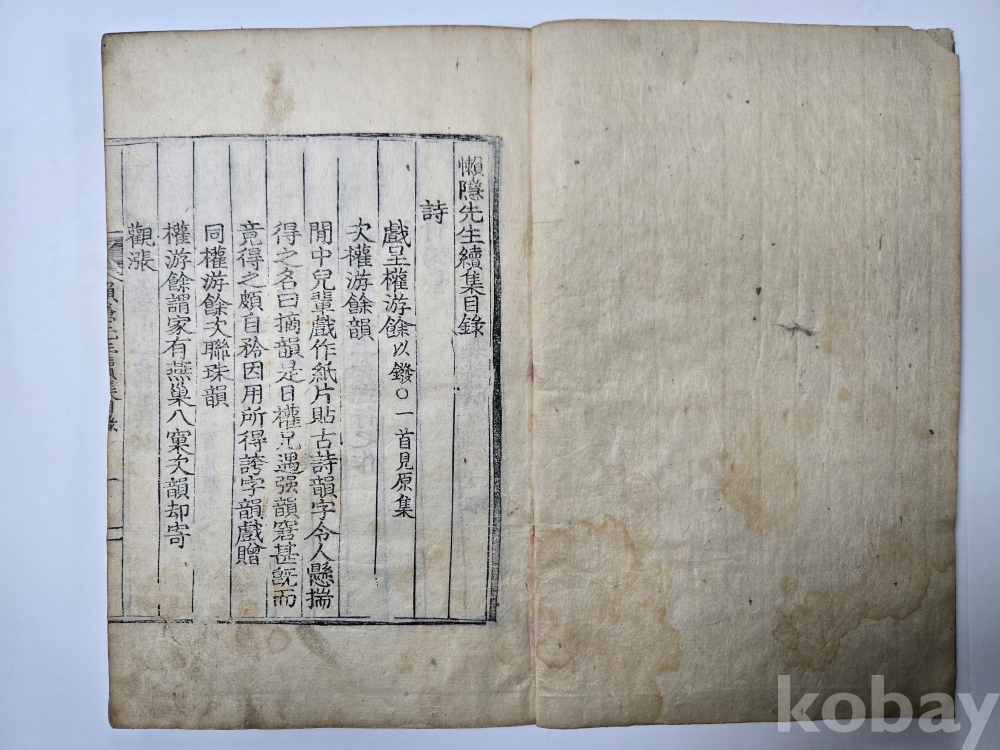 懶隱先生續集目錄
詩
戲呈權游餘以鏺〇一首見原集
次權游餘韻
閒中兒輩戲作紙片貼古詩韻字令人懸揣
得之名曰摘韻是日權兄遇强韻窘甚旣而
竟得之頗自矜因用所得誇字韻戲贈
同權游餘次聯珠韻
權游餘謂家有燕巢八窠次韻却寄
觀漲
kobay